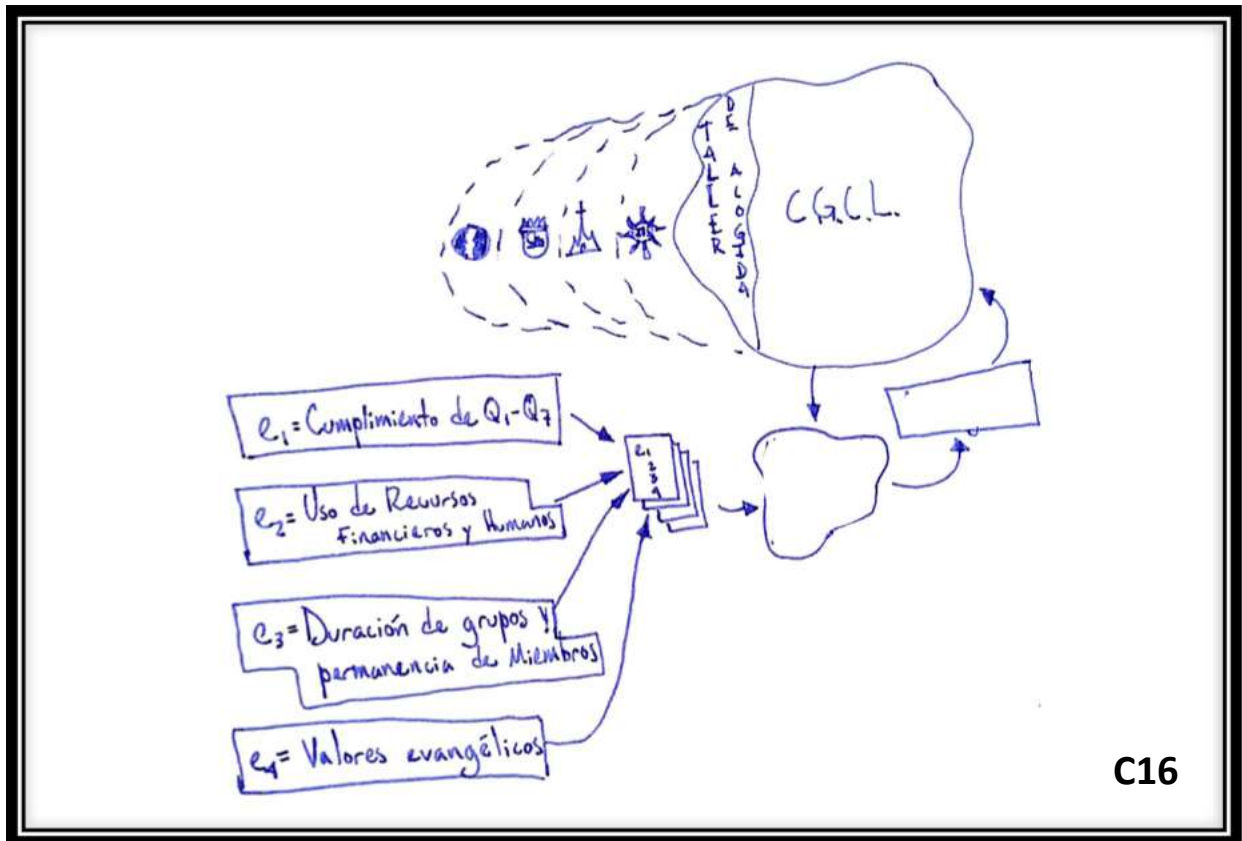 TALLER
DE ACOGIDA
C.G.C.L.
e₁= Cumplimiento de Q₁-Q₇
e₂= Uso de Recursos
Financieros y Humanos
e₃= Duración de grupos y
permanencia de Miembros
e₄= Valores evangélicos
e₁
2
3
4
C16